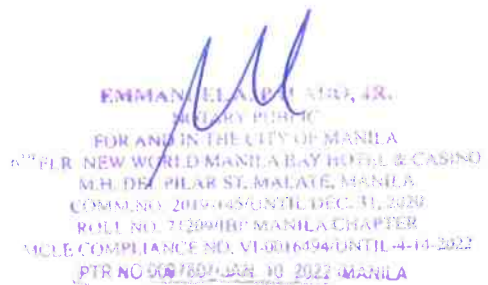 EMMANUEL A. JR.
NOTARY PUBLIC
FOR AND IN THE CITY OF MANILA
6TH FLR NEW WORLD MANILA BAY HOTEL & CASINO
M.H. DEL PILAR ST. MALATE, MANILA
COMM. NO. 2019-145/UNTIL DEC. 31, 2020
ROLL NO. MANILA CHAPTER
MCLE COMPLIANCE NO. VI-0016494/UNTIL-4-14-2022
PTR NO JAN. 10 2022 MANILA